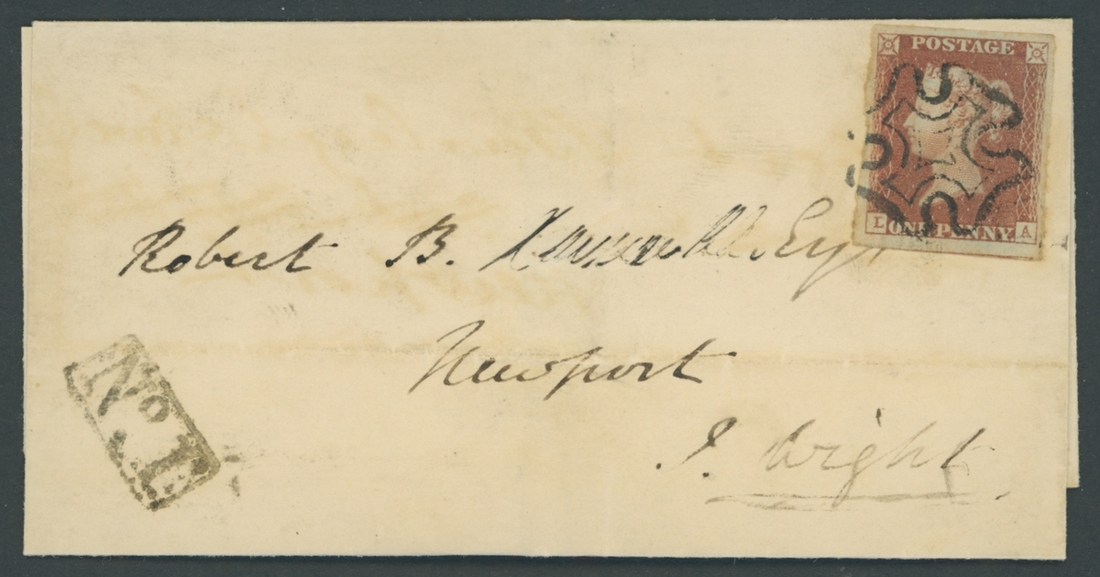 POSTAGE
L ONE PENNY A
Robert B. Esqr
Newport
I. Wight
No. 1